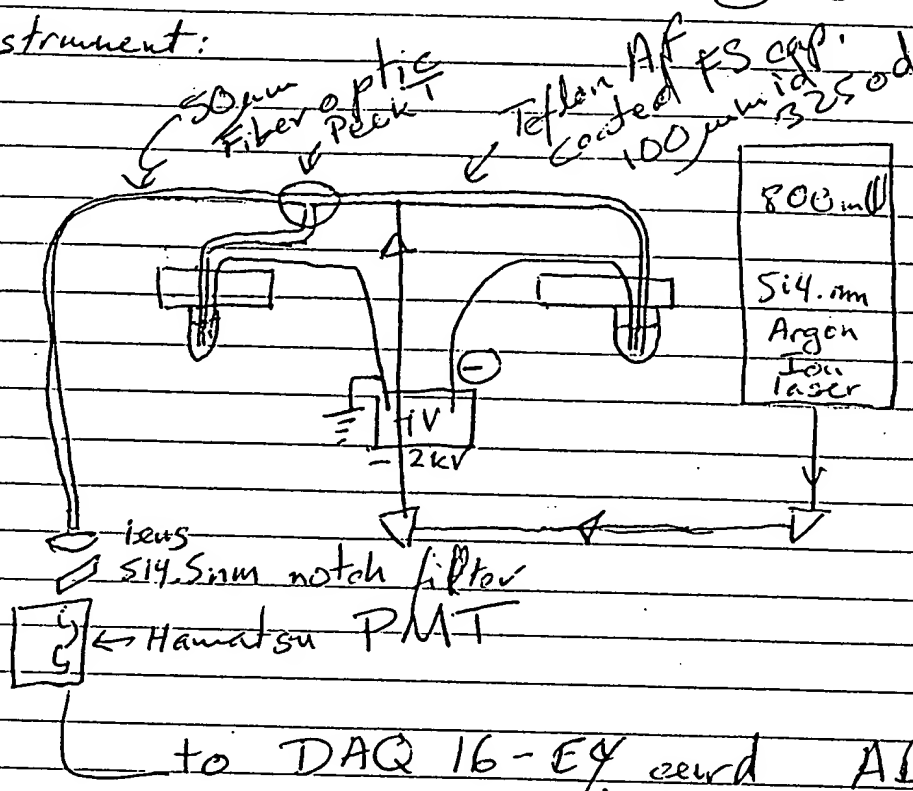 strument:
50 µm
Fiber optic
Peek T
Teflon AF
coated FS cap.
100 µm id
325 od
800 mW
514. nm
Argon
Ion
laser
-
HV
- 2kV
lens
514.5nm notch filter
Hamatsu PMT
to DAQ 16-E4 card